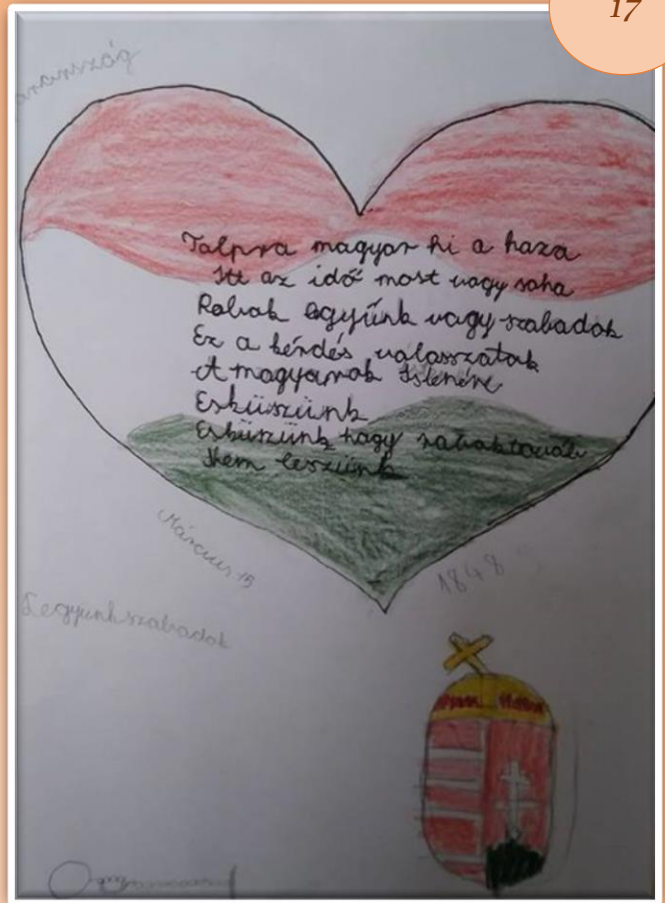 17
Talpra magyar hi a haza
Itt az idő most vagy soha
Rabok együnk vagy szabadok
Ez a kérdés valasszatok
A magyarok Istenére
Esküszünk
Esküszünk hogy rabok tovább
Nem leszünk
Március 15
1848
Legyünk szabadok